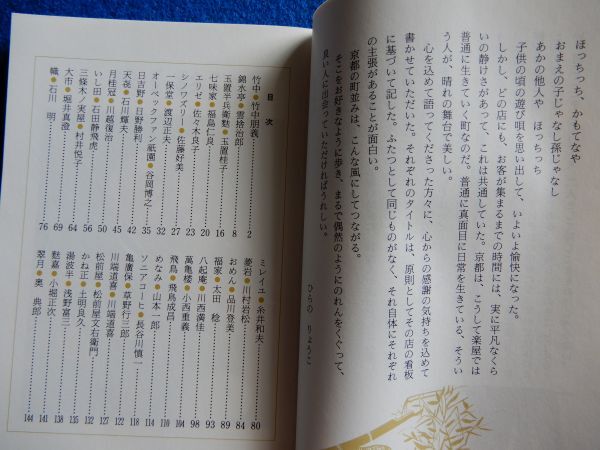 ほっちっち、かもてなや
おまえの子じゃなし孫じゃなし
あかの他人や ほっちっち
子供の頃の遊び唄を思い出して、いよいよ愉快になった。
しかし、どの店にも、お客が集まるまでの時間には、実に平凡なくら
しの静けさがあって、これは共通していた。京都は、こうして楽屋では
普通に生きていく町なのだ。普通に真面目に日常を生きている、そうい
う人が、晴れの舞台で美しい。
心を込めて語ってくださった方々に、心からの感謝の気持ちを込めて
書かせていただいた。それぞれのタイトルは、原則としてその店の看板
に基づいて記した。ふたつとして同じものがなく、それ自体にそれぞれ
の主張があることが面白い。
京都の町並みは、こんな風にしてつながる。
そこをお好きなように歩き、まるで偶然のようにのれんをくぐって、
良い人に出会っていただければうれしい。
ひらの りょうこ
目次
竹中●竹中朋義 2
錦水亭●雲捨治郎 8
玉置半兵衛麩●玉置桂子 16
七味家●福島仁良 20
エリゼ●佐々木良子 23
シノワズリー●佐藤好美 27
一保堂●渡辺正夫 32
オーペックファン祇園●谷岡博之 35
日吉野●日野勝利 42
天㐂●石川輝夫 45
月桂冠●川越復治 50
いし田●石田静飛虎 56
三條木ノ実屋●村井悦子 64
大市●堀井真澄 69
幟●石川 明 76
ミレイユ●糸井和夫 80
夢岩●川村岩松 84
おめん●品川登美 89
福家●太田 稔 93
八起庵●川西満佳 98
萬亀楼●小西重義 104
飛鳥●飛鳥成昌 110
めなみ●山本一郎 114
ソニアコーヒ●長谷川慎一 118
亀廣保●草野行三郎 122
川端道喜●川端道喜 127
松前屋●松前屋文右衛門 132
かね正●土明良久 135
湯波半●浅野富三 138
麩嘉●小堀正次 141
翠月●奥 典郎 144